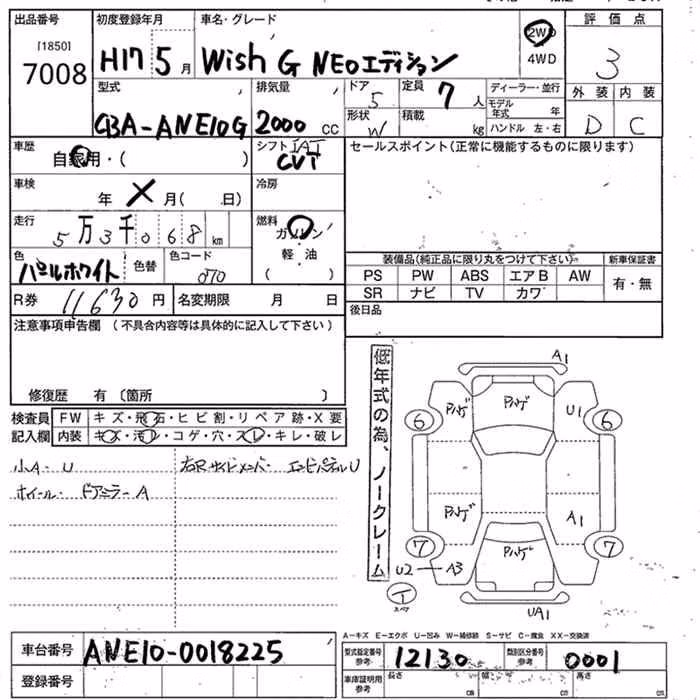 出品番号
[1850]
7008
初度登録年月
H17 5月
車名・グレード
Wish G NEOエディション
2WD
4WD
評価点
3
外装 内装
D C
型式
CBA-ANE10G
排気量
2000 CC
ドア
5
形状
W
定員
7人
積載
kg
ディーラー・並行
モデル年式 年
ハンドル 左・右
車歴
自家用・( )
シフト IAT
CVT
セールスポイント(正常に機能するものに限ります)
車検
年 X 月( 日)
冷房
走行
5万3千068km
燃料
ガソリン
軽油
( )
色
パールホワイト
色替
色コード
070
装備品(純正品に限り丸をつけて下さい)
新車保証書
PS PW ABS エアB AW
有・無
SR ナビ TV カワ
R券 11630円
名変期限 月 日
後日品
注意事項申告欄 (不具合内容等は具体的に記入して下さい)
修復歴 有〔箇所 〕
検査員 FW キズ・飛石・ヒビ割・リペア跡・X要
記入欄 内装 キズ・汚レ・コゲ・穴・スレ・キレ・破レ
小A・U
右Rサイドメンバー エンドパネルU
ホイール・ドアミラーA
低年式の為、ノークレーム
A1
ハゲ ハゲ U1
6 6
ハゲ A1
7 ハゲ 7
U2 A3
T
スペア
UA1
A-キズ E-エクボ U-凹み W-補修跡 S-サビ C-腐食 XX-交換済
車台番号 ANE10-0018225
型式指定番号
参考
12130
類別区分番号
参考
0001
登録番号
車庫証明用
参考
長さ CM
幅 CM
高さ CM